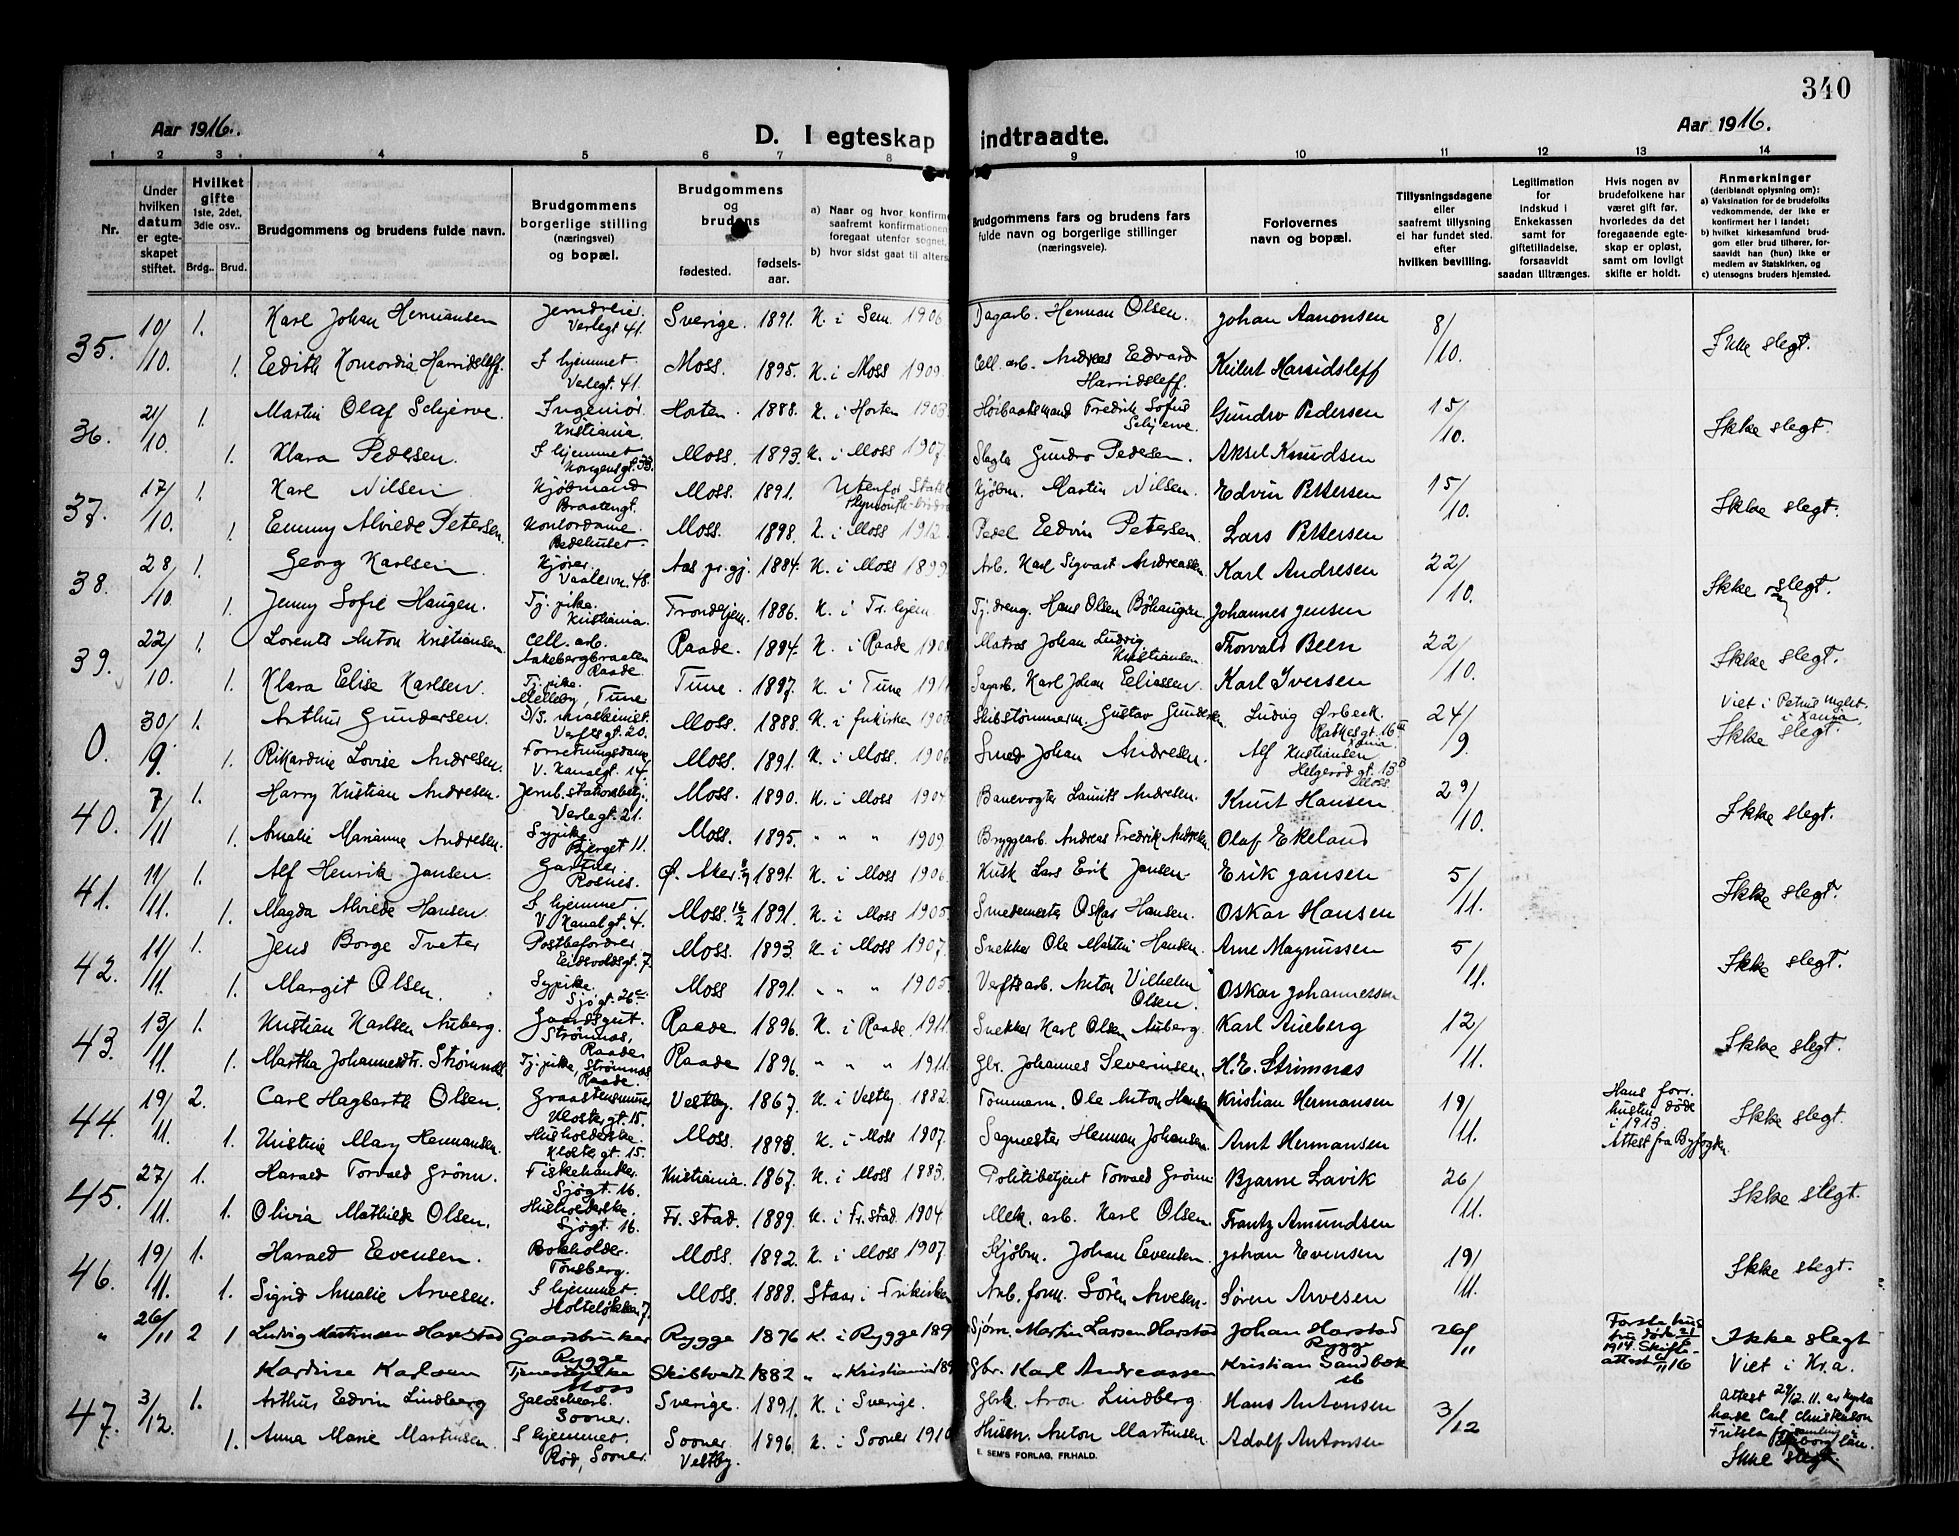 340
Aar 1916.
D. I egteskap indtraadte.
Aar 1916.
1 2 3 4 5 6 7 8 9 10 11 12 13 14
Nr.
Under hvilken datum er egteskapet stiftet.
Hvilket gifte 1ste, 2det, 3die osv..
Brdg.. Brud.
Brudgommens og brudens fulde navn.
Brudgommens borgerlige stilling (næringsvei) og bopæl.
Brudgommens og brudens
fødested.
fødselsaar.
a) Naar og hvor konfirme
saafremt konfirmationen
foregaat utenfor sognet,
b) hvor sidst gaat til alters
Brudgommens fars og brudens fars fulde navn og borgerlige stillinger (næringsveie).
Forlovernes navn og bopæl.
Tillysningsdagene eller saafremt tillysning ei har fundet sted. efter hvilken bevilling.
Legitimation for indskud i Enkekassen samt for giftetilladelse, forsaavidt saadan tiltrænges.
Hvis nogen av brudefolkene har været gift før, hvorledes da det foregaaende egteskap er opløst, samt om lovligt skifte er holdt.
Anmerkninger (deriblandt oplysning om):
a) Vaksination for de brudefolks vedkommende, der ikke er konfirmert her i landet;
b) hvilket kirkesamfund brudgom eller brud tilhører, forsaavidt han (hun) ikke er medlem av Statskirken, og
c) utensogns bruders hjemsted.
35. 10/10. 1. Karl Johan Hermansen Jerndreier Verlegt 41. Sverige. 1891. K. i Sem. 1906 Dagarb. Herman Olsen. Johan Aanonsen 8/10. Ikke slegt.
1. Edith Koncordia Harridsleff. I hjemmet Verlegt. 41. Moss. 1895. K. i Moss 1909. Cell. arb. Andreas Edvard Harridsleff. Keilert Harridsleff
36. 21/10. 1. Martin Olaf Schjerve. Ingeniør. Kristiania. Horten. 1888. K. i Horten 1903 Høibaatsmand Fredrik Sofus Schjerve. Gundro Pedersen 15/10. Ikke slegt.
1. Klara Pedersen. I hjemmet Kongensgt. 33. Moss. 1893. K. i Moss 1907. Gundro Pedersen. Aksel Knudsen
37. 17/10. 1. Karl Nilsen Kjøbmand Braatengt. Moss. 1891. Utenfor Stats Plymouth-brødre Kjøbm. Martin Nilsen. Edvin Pettersen 15/10. Ikke slegt.
1. Emmy Alviede Petersen. Kontordame. Bedehuset. Moss. 1898. K. i Moss 1912. Pedel Edvin Petersen. Lars Pettersen
38. 28/10. 1. Georg Karlsen. Kjører. Vaalervn. 48. Aas pr.gj. 1884. K. i Moss 1899 Arb. Karl Sigvart Andreassen Karl Andresen 22/10. Ikke slegt.
1. Jenny Sofie Haugen. Tj. pike. Kristiania. Trondhjem. 1886. K. i Tr. hjem Tj. dreng. Hans Olsen Bøhaugen Johannes Jensen
39. 22/10. 1. Lorents Anton Kristiansen. Cell. arb. Aakebergbraaten Raade. Raade. 1894. K. i Raade 1908 Matros Johan Ludvig Kristiansen. Thorvald Been 22/10. Ikke slegt.
1. Klara Elise Karlsen. Tj. pike. Melleby, Tune Tune. 1897. K. i Tune 1911 Sagarb. Karl Johan Eliassen. Karl Iversen
0. 30/9. 1. Arthur Gundersen. D/S. maskinist. Verftsgt. 20. Moss. 1888. K. i frikirken 1903. Skibstømmerm. Gustav Gundersen Ludvig Ørbeck. Rathkesgt. 16 II 24/9. Viet i Petrus Ikke slegt.
1. Rikardine Lovise Andresen. Forretningsdame V. Kanalgt. 14. Moss. 1891. K. i Moss. 1906 Smed Johan Andresen. Alf Kristiansen Helgerød gt. 13 B Moss.
40. 7/11 1. Harry Kristian Andresen. Jernb. stationsbetj. Verlegt. 21. Moss. 1890. K. i Moss 1904 Banevogter Laurits Andresen. Knut Hansen 29/10. Ikke slegt.
1. Amalie Marianne Andresen. Sypike. Bjerget 11. Moss. 1895. " " " 1909. Bryggearb. Andreas Fredrik Andresen Olaf Ekeland
41. 11/11. 1. Alf Henrik Jansen. Gartner Rosnes. Ø. Aker. 1891. K. i Moss 1906. Kusk Lars Erik Jansen. Erik Jansen 5/11. Ikke slegt.
1. Magda Alviede Hansen. I hjemmet. V. Kanalgt. 4. Moss. 16/2 1891. K. i Moss 1905. Smedemester Oskar Hansen. Oskar Hansen
42. 11/11. 1. Jens Borge Tveter Postbefordrer. Eidsvoldsgt. 7. Moss. 1893. K. i Moss 1907. Snekker Ole Martin Hansen. Arne Magnussen 5/11. Ikke slegt.
1. Margit Olsen. Sypike. Sjøgt. 26 c. Moss 1891. " " " 1905. Verftsarb. Anton Vilhelm Olsen. Oskar Johannessen
43. 13/11. 1. Kristian Karlsen Auberg. Gaardsgut. Strømnæs, Raade. Raade 1896. K. i Raade. 1911. Snekker Karl Olsen Auberg. Karl Aueberg 12/11. Ikke slegt.
1. Martha Johannesdtr. Strømnæs. Tj. pike, Strømnæs Raade. Raade 1896. " " " 1911. Gbr. Johannes Severinsen. H. E. Strømnæs
44. 19/11. 2. Carl Hagbarth Olsen. Graastensminer Klostergt. 15. Vestby. 1867. K. i Vestby. 1882. Tømmerm. Ole Anton Hansen Kristian Hermansen 19/11. Hans forr. hustru døde i 1913. Attest fra Byfogden. Ikke slegt.
1. Kristine Mary Hermansen. Husholderske. Klostergt. 15. Moss. 1893. K. i Moss 1907. Sagmester Herman Johansen. Arnt Hermansen
45. 27/11. 1. Harald Torvald Grønn. Fiskehandler. Sjøgt. 16. Kristiania. 1867. K. i Moss 1883. Politibetjent Torvald Grønn Bjarne Lavik 26/11. Ikke slegt.
1. Olivia Mathilde Olsen. Husholderske. Sjøgt. 16. Fr. stad. 1889. K. i Fr. stad. 1904. Mek. arb. Karl Olsen. Frantz Amundsen
46. 19/11. 1. Harald Evensen. Bokholder. Tønsberg. Moss. 1892. K. i Moss 1907. Kjøbm. Johan Evensen. Johan Evensen 19/11. Ikke slegt.
1. Sigrid Amalie Arvesen. I hjemmet. Holteløkken 7. Moss. 1888. Staar i Frikirken Anb. form. Sören Arvesen. Søren Arvesen
" 26/11 2 1 Ludvig Martinsen Harestad Gaardbruker Rygge Rygge 1876 K. i Rygge 189 Sjøm. Martin Larsen Harstad Johan Harstad Rygge 26/11 Første hustru døde 1914. Skifteattest 11 16 Ikke slegt Viet i Kr.a.
Kardine Karlsen Tjenestepike Moss Skibtvedt 1882 " " Kristiania 189 Gbr. Karl Andreassen Kristian Sandbæk
47. 3/12. 1. Arthur Edvin Lindberg Galoschearb. Sooner. Sverige. 1891. K. i Sverige. Gbrk. Aron Lindberg. Hans Antonsen 3/12 Attest 29/12. 11. av Kyrkoherde Carl Christenson Fritsla församling län. Ikke slegt.
1. Anna Marie Martinsen. I hjemmet. Rød, Sooner. Sooner Vestby. 1896. K. i Sooner 1910 Husm. Anton Martinsen Adolf Antonsen
E. SEM'S FORLAG, FR.HALD.